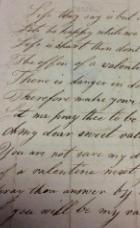 Life they say is but a
Lets be happy while we
Life is short then dont
The offer of a valentine
There is danger in de
Therefore make your
Let me pray thee to be
Oh my dear sweet val
You are not sure my d
of a valentine next
pray thou answer by
you will be my va